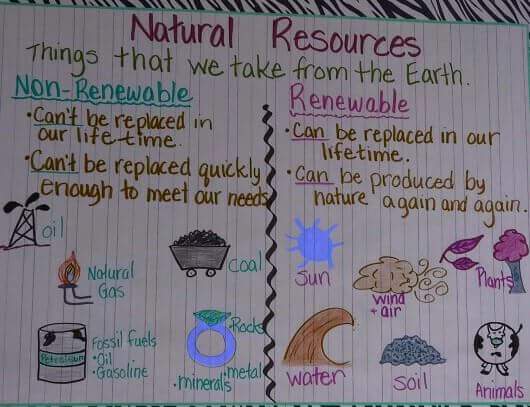 Natural Resources
Things that we take from the Earth.
Non-Renewable
• Can't be replaced in
our life time.
• Can't be replaced quickly
enough to meet our needs
oil
Natural
Gas
Coal
Petroleum
Fossil fuels
• Oil
• Gasoline
• Rocks
• metal
• minerals
Renewable
• Can be replaced in our
lifetime.
• Can be produced by
nature again and again.
Sun
Wind
+ air
Plants
Water
Soil
Animals